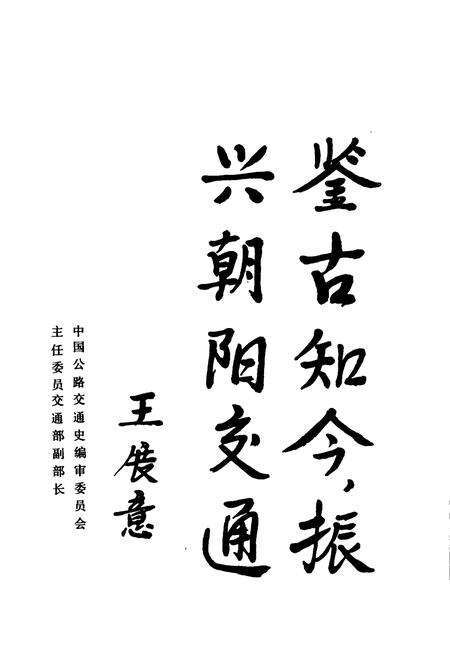 鉴古知今，振
兴朝阳交通
王展意
中国公路交通史编审委员会
主任委员交通部副部长